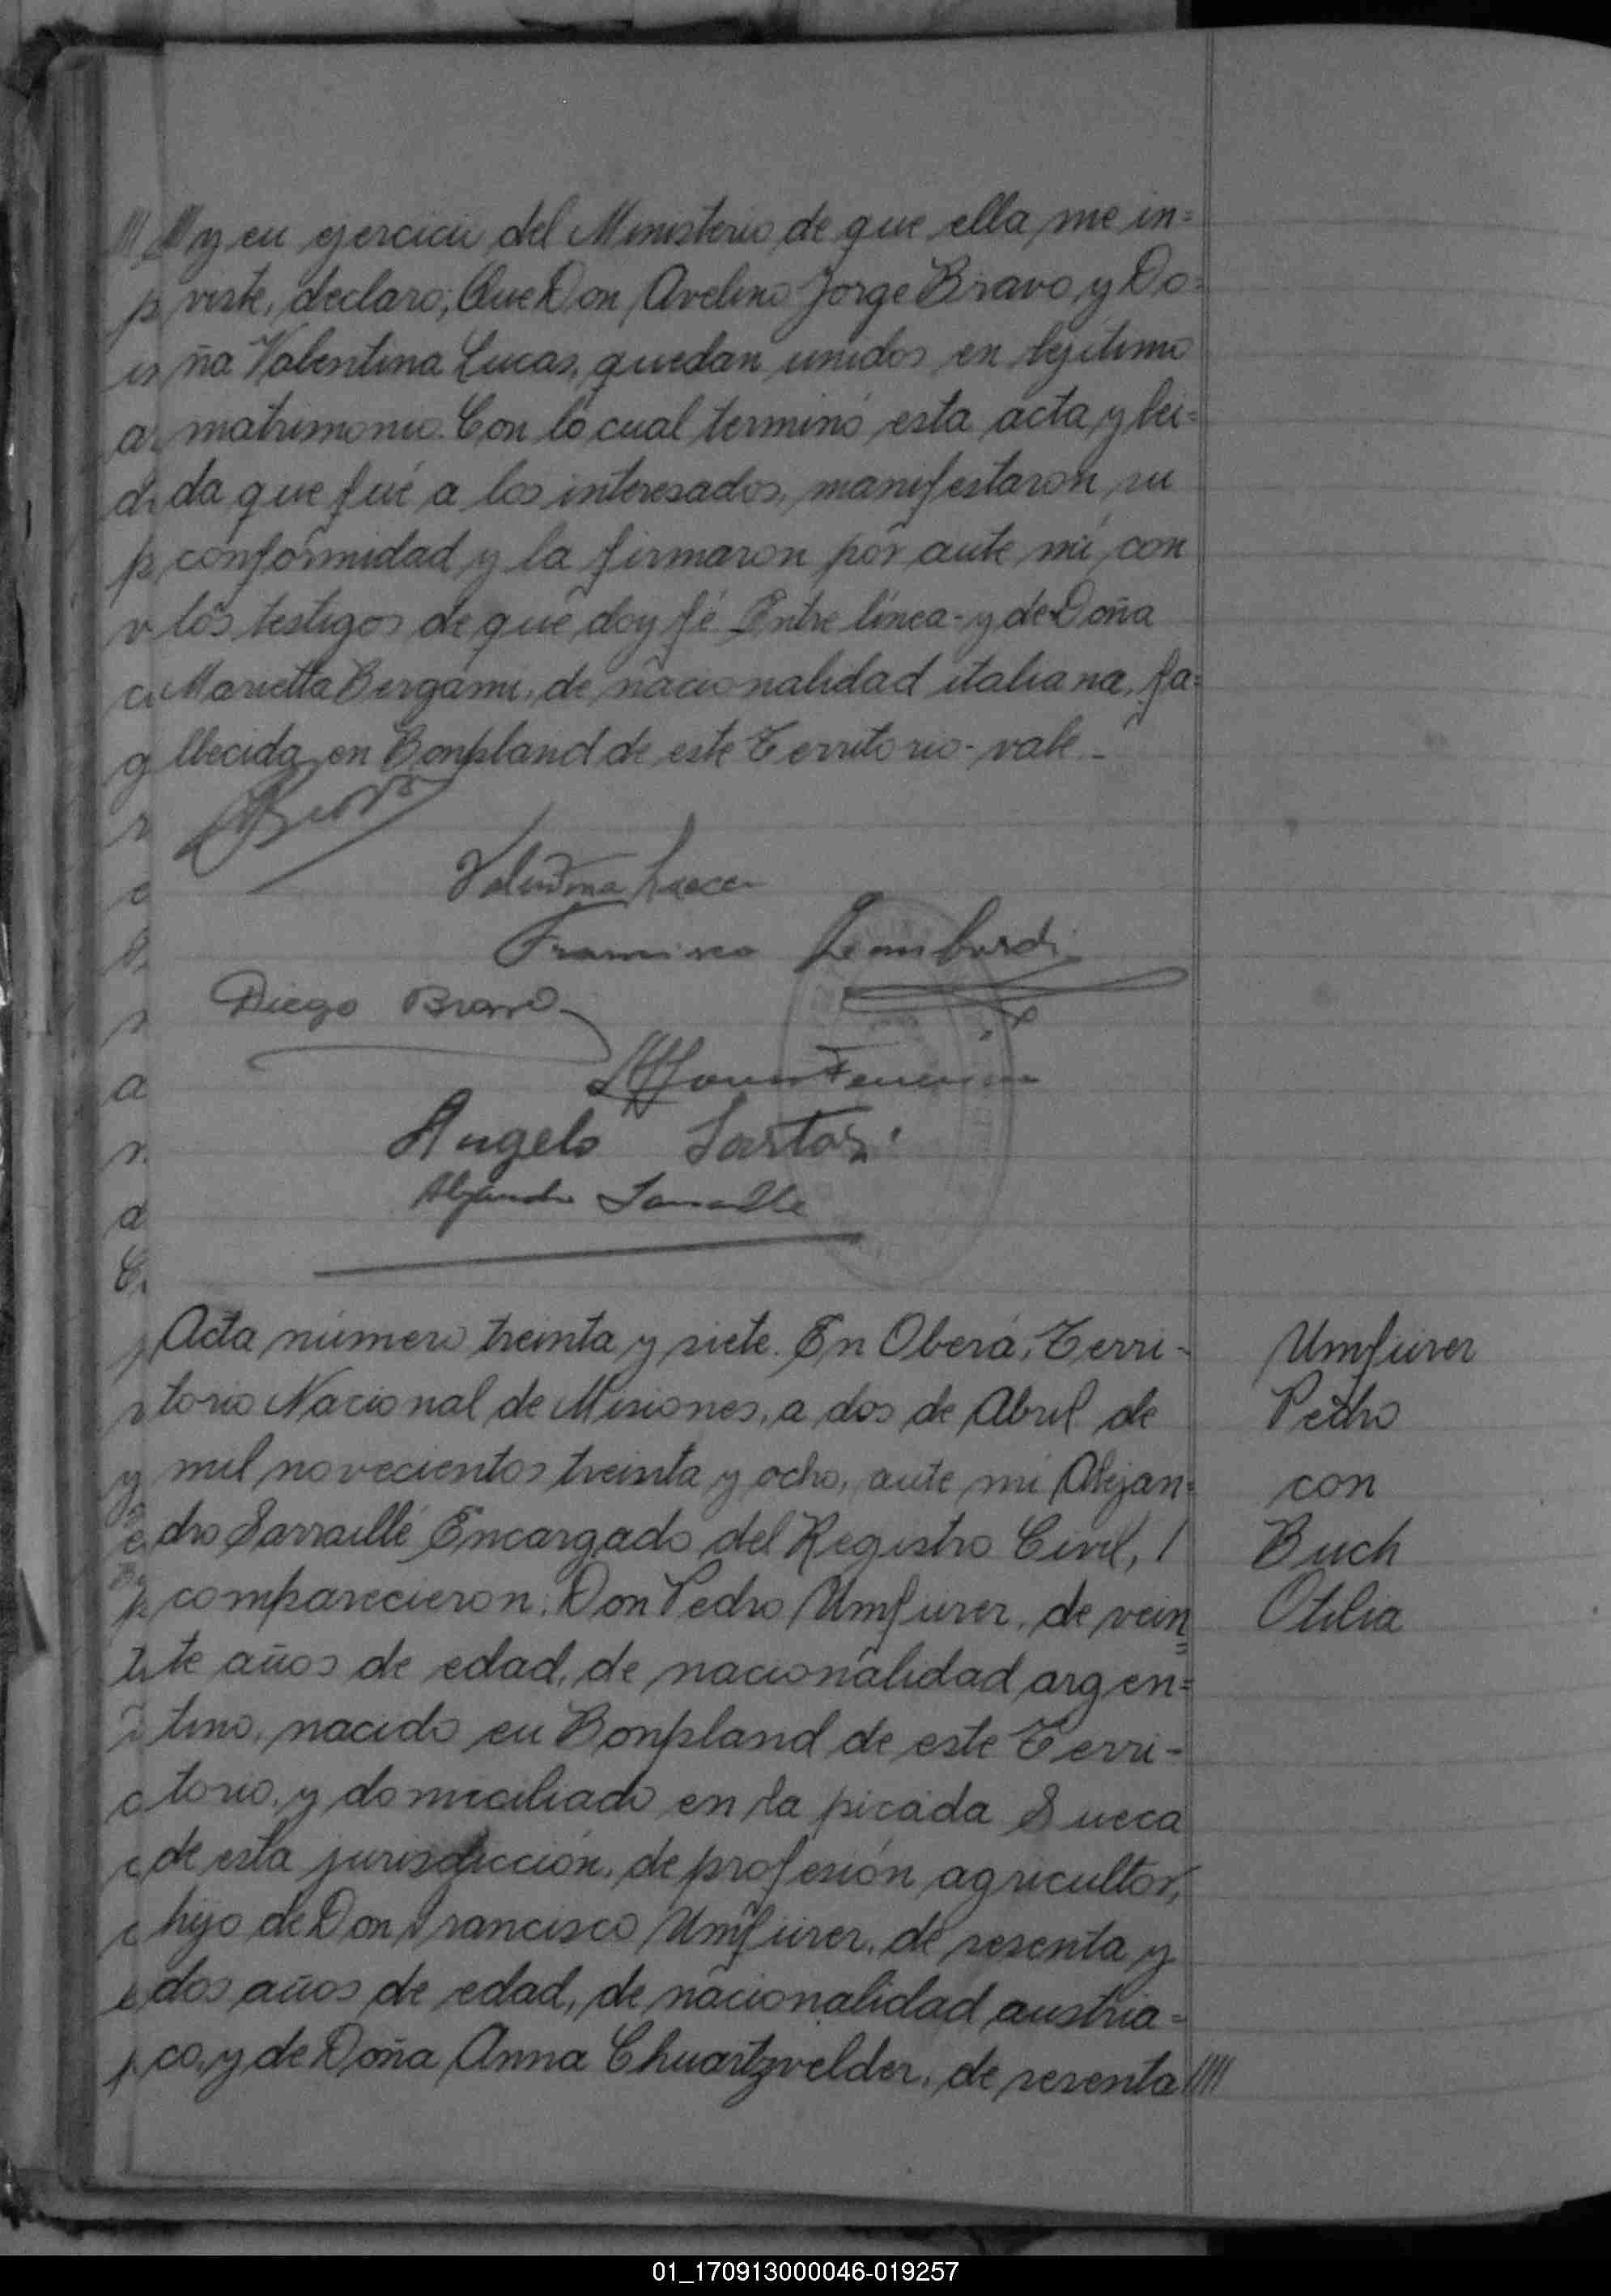 //// y en ejercicio del Ministerio de que ella me in=
viste, declaro; Que Don Avelino Jorge Bravo y Do=
ña Valentina Lucas, quedan unidos en lejitimo
matrimonio. Con lo cual terminó esta acta y lei=
da que fué a los interesados, manifestaron su
conformidad y la firmaron por ante mi, con
los testigos de que doy fé Entre línea - y de Doña
Marietta Bergami, de nacionalidad italiana, fa=
llecida en Bonpland de este Territorio - vale -
Valentina Lucas
Francisco Lombardi
Diego Bravo
Angelo Sartori
Alejandro Sarraille
Acta número treinta y siete. En Oberá, Terri-
torio Nacional de Misiones, a dos de Abril de
mil novecientos treinta y ocho, ante mi Alejan=
dro Sarraillé Encargado del Registro Civil, /
comparecieron: Don Pedro Umfurer, de vein=
te años de edad, de nacionalidad argen=
tino, nacido en Bonpland de este Terri-
torio, y domiciliado en la picada Sueca
de esta jurisdicción, de profesión agricultor,
hijo de Don Francisco Umfürer, de sesenta y
dos años de edad, de nacionalidad austria=
co, y de Doña Anna Chuartzvelder, de sesenta ////
Umfürer
Pedro
con
Buch
Otilia
01_170913000046-019257